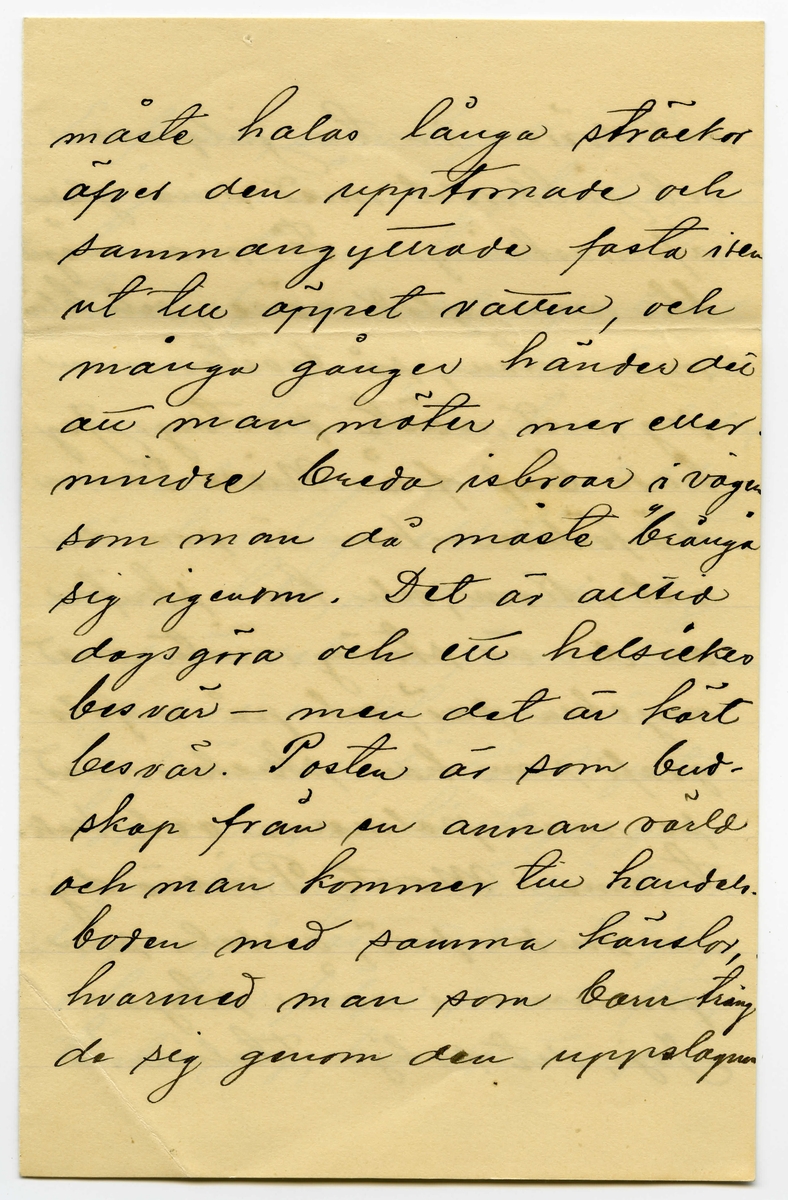 måste halas långa sträckor
öfver den upptornade och
sammangyttrade fasta isen
ut till öppet vatten, och
många gånger händer det
att man möter mer eller
mindre breda isbroar i vägen
som man då måste "brånga"
sig igenom. Det är alltid
dagsgöra och ett helsickes
besvär – men det är kärt
besvär. Posten är som bud-
skap från en annan värld
och man kommer till handels-
boden med samma känslor,
hvarmed man som barn träng
de sig genom den uppslagna